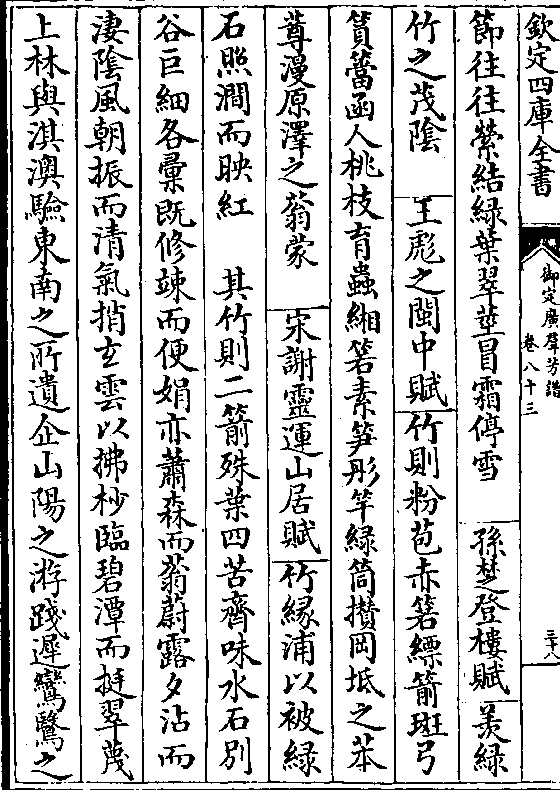 欽定四庫全書
御定廣羣芳譜
卷八十三
三十八
節往往縈結綠葉翠莖冒霜停雪 孫楚登樓賦 羡綠
竹之茂陰 王彪之閩中賦 竹則粉苞赤箬縹箭斑弓
篔簹函人桃枝育蟲緗箬素笋彤竿綠筒攢岡坻之苯
䔿漫原澤之蓊蒙 宋謝靈運山居賦 竹緣浦以被綠
石照澗而映紅 其竹則二箭殊葉四苦齊味水石別
谷巨細各彙既修竦而便娟亦蕭森而蓊蔚露夕沾而
淒陰風朝振而清氣捎玄雲以拂杪臨碧潭而挺翠蔑
上林與淇澳驗東南之所遺企山陽之游踐遲鸞鷖之